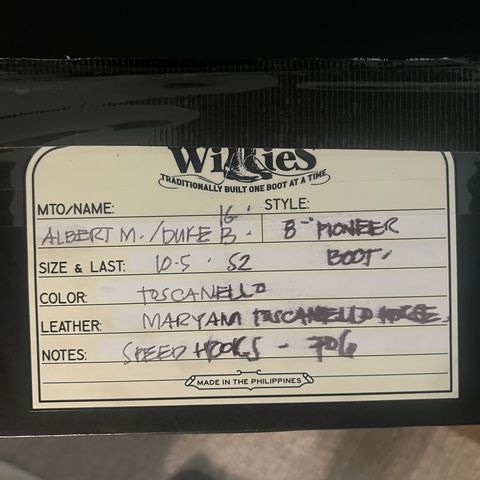 Willies
TRADITIONALLY BUILT ONE BOOT AT A TIME
MTO/NAME: 16. STYLE:
ALBERT M. / DUKE B. 8" PIONEER
SIZE & LAST: 10.5 . S2 BOOT.
COLOR: TOSCANELLO
LEATHER: MARYAM TOSCANELLO HORSE
NOTES: SPEED HOOKS - 706
MADE IN THE PHILIPPINES